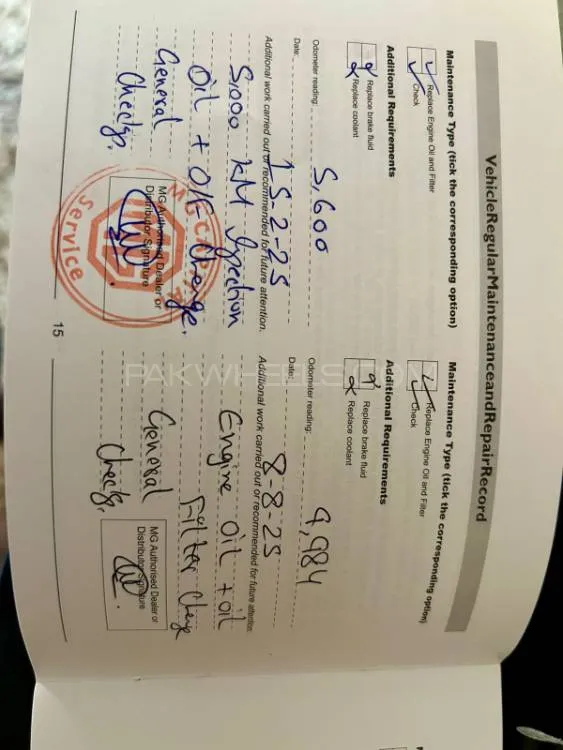 VehicleRegularMaintenanceandRepairRecord
Maintenance Type (tick the corresponding option)
Replace Engine Oil and Filter
Check
Additional Requirements
Replace brake fluid
Replace coolant
Odometer reading: 5,600
Date: 15-2-25
Additional work carried out or recommended for future attention.
5,000 KM Inspection
Oil + O/F Change.
General
Checkup.
MG Authorised Dealer or
Distributor Signature
MG CAPITAL
Service
15
Maintenance Type (tick the corresponding option)
Replace Engine Oil and Filter
Check
Additional Requirements
Replace brake fluid
Replace coolant
Odometer reading: 9,984
Date: 8-8-25
Additional work carried out or recommended for future attention.
Engine oil + oil
Filter change
General
Checkup.
MG Authorised Dealer or
Distributor Signature
PAKWHEELS.COM